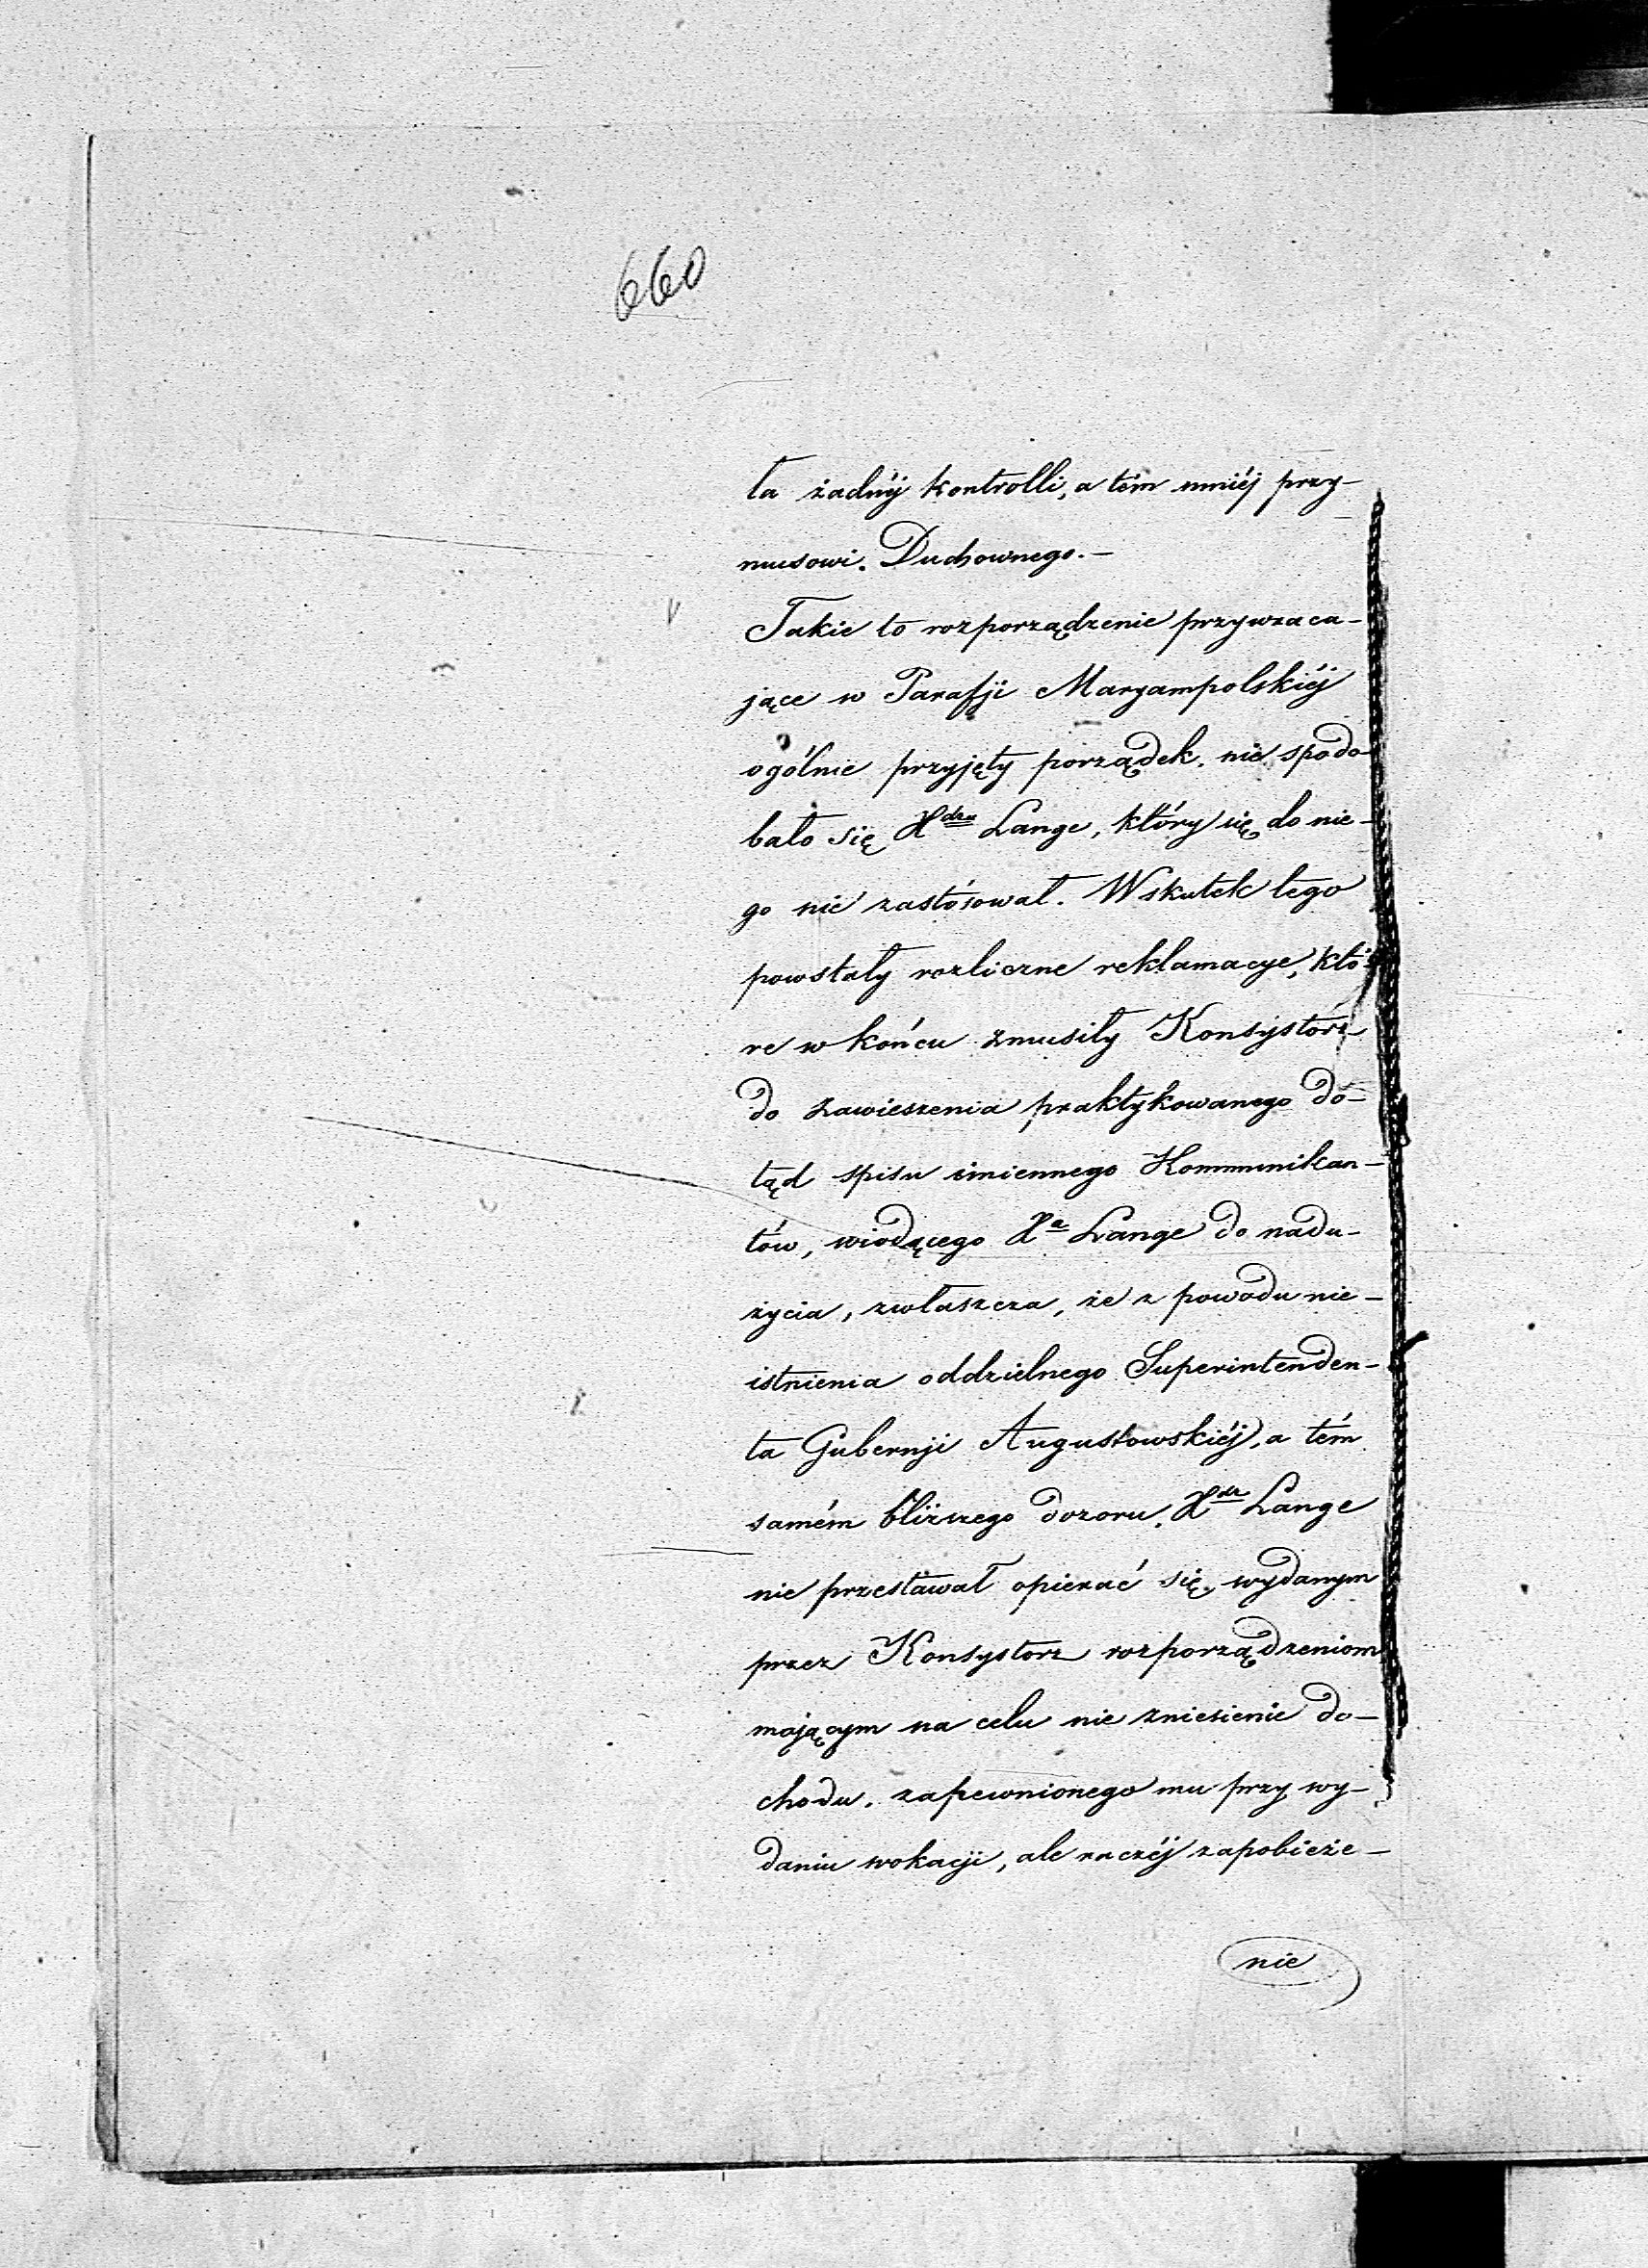 660
ła żadnéj kontrolli, a tém mniéj przy-
musowi Duchownego.-
Takie to rozporządzenie przywraca-
jące w Parafji Maryampolskiéj
ogólnie przyjęty porządek, nie spodo-
bało się Xdzu Lange, który się do nie-
go nie zastósował. Wskutek tego
powstały rozliczne reklamacye, któ-
re w końcu zmusiły Konsystorz
do zawieszenia praktykowanego do-
tąd spisu imiennego Kommunikan-
tów, wiodącego Xa Lange do nadu-
życia, zwłaszcza, że z powodu nie-
istnienia oddzielnego Superintenden-
ta Gubernji Augustowskiéj, a tém
samém bliższego dozoru, Xdz Lange
nie przestawał opierać się wydanym
przez Konsystorz rozporządzeniom
mającym na celu nie zniesienie do-
chodu, zapewnionego mu przy wy-
daniu wokacji, ale raczéj zapobieże-
nie